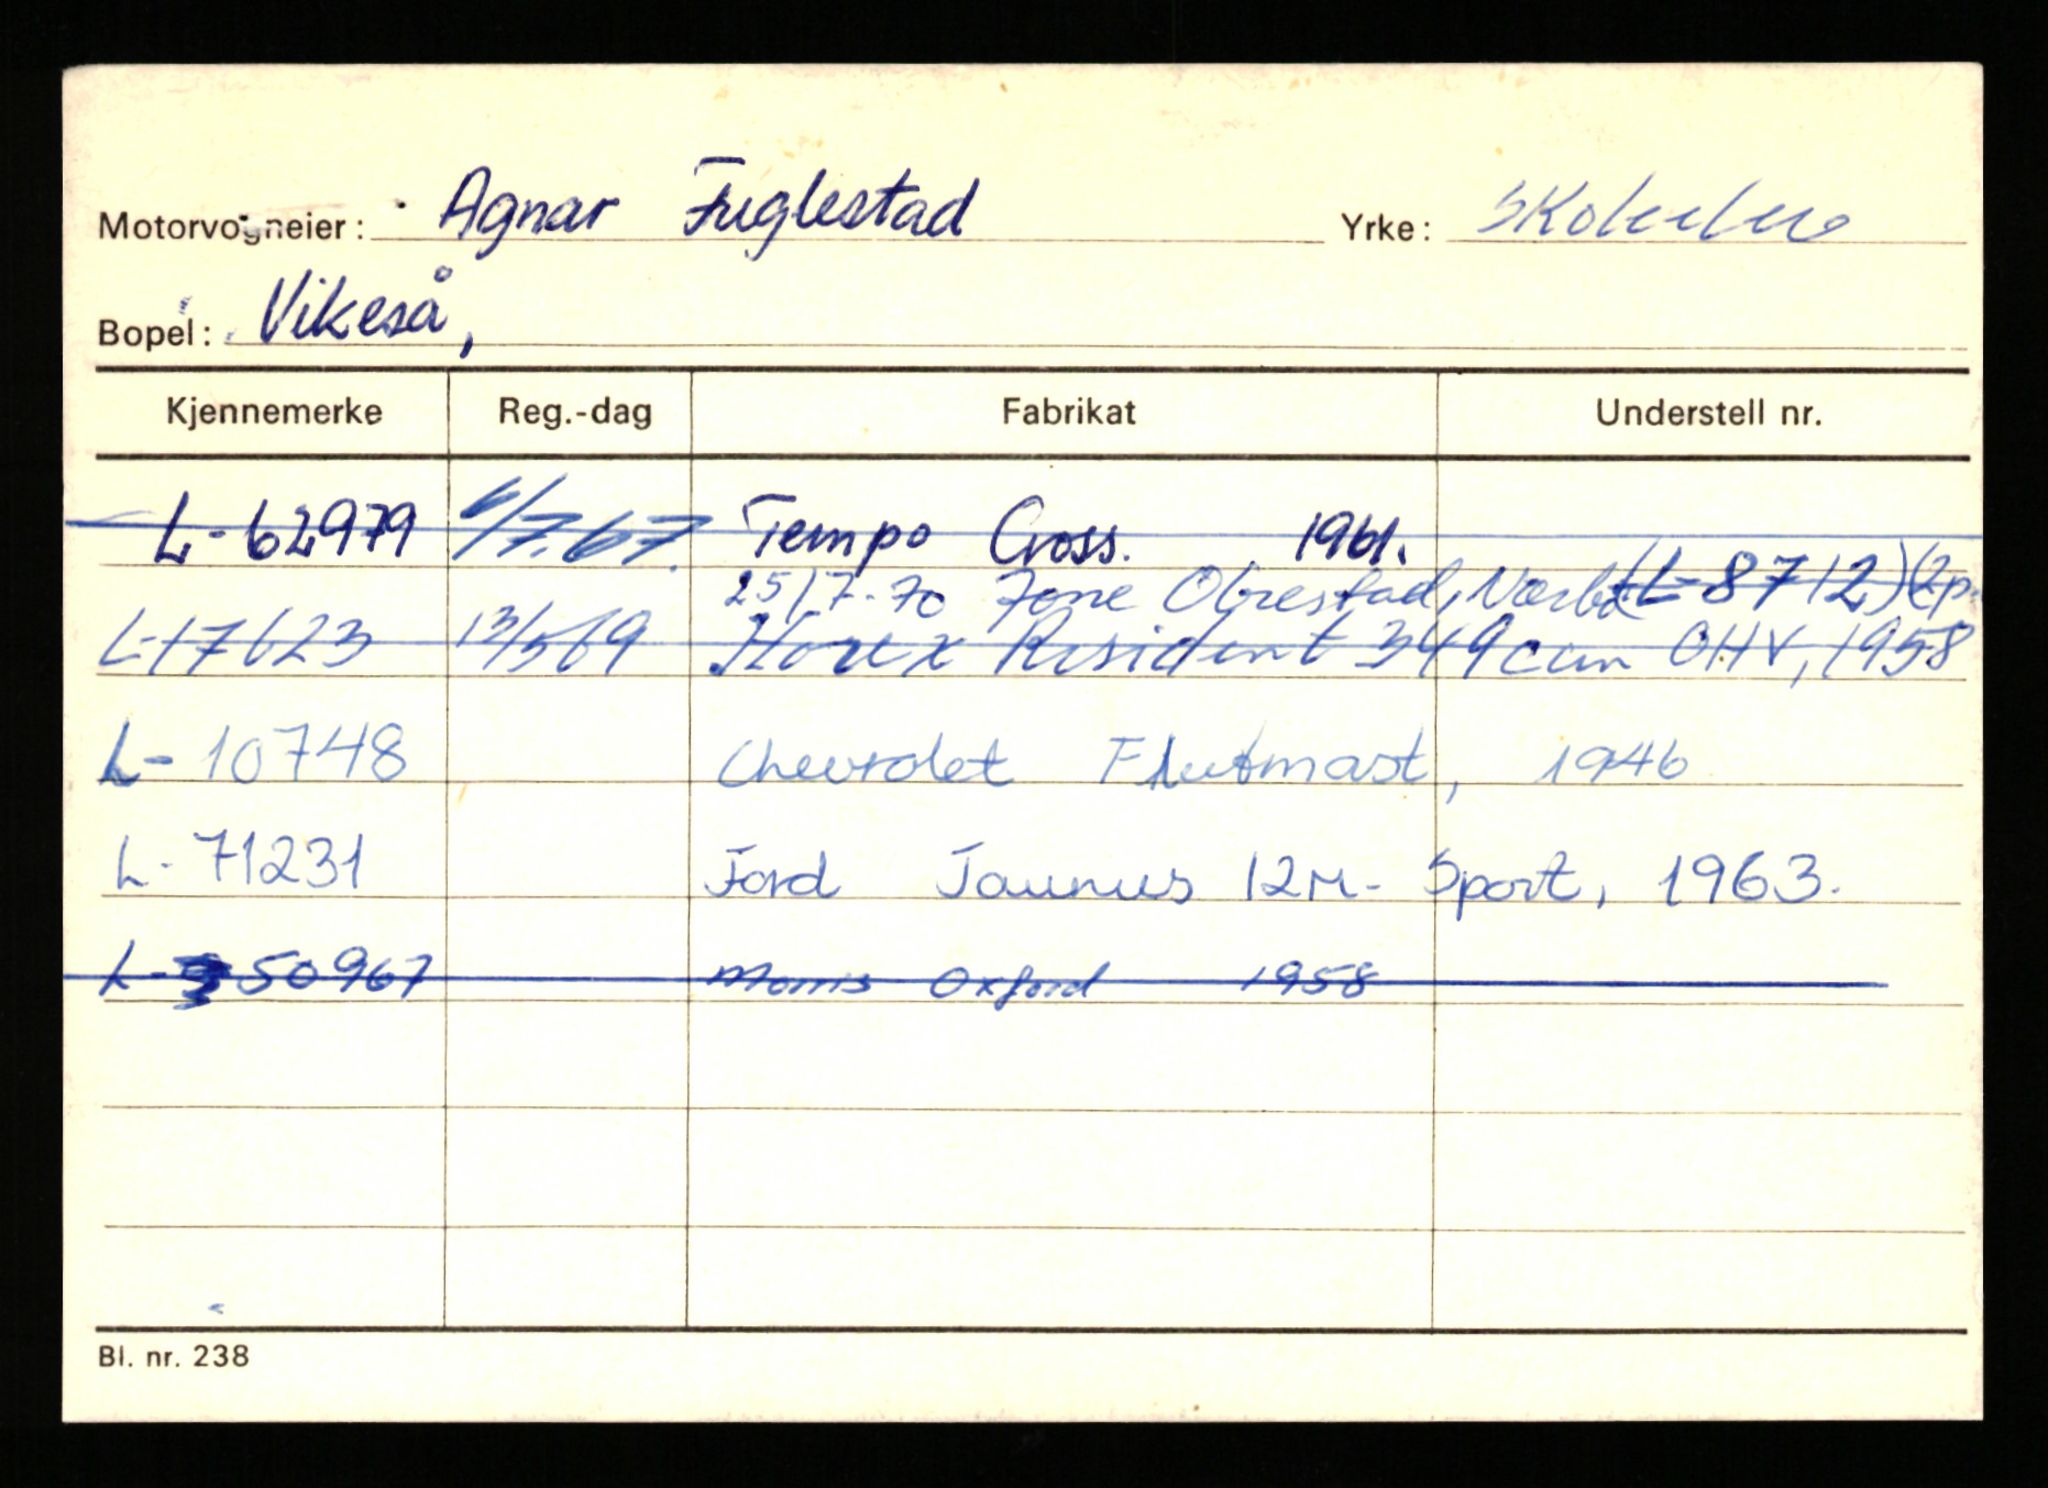 Motorvogneier: Agnar Fuglestad Yrke:
Bopel: Vikeså,
Kjennemerke Reg.-dag Fabrikat Understell nr.
L-62979 6/7.67. Tempo Cross. 1961.
25/7-70 Tone Obrestad, Nærbø (L-8712) (2p.
L-17623 13/5 69 Horex Resident 349 ccm OHV, 1958
L-10748 Chevrolet Fleetmast, 1946
L-71231 Ford Taunus 12M- Sport, 1963.
L-50967 Morris Oxford 1958
Bl. nr. 238